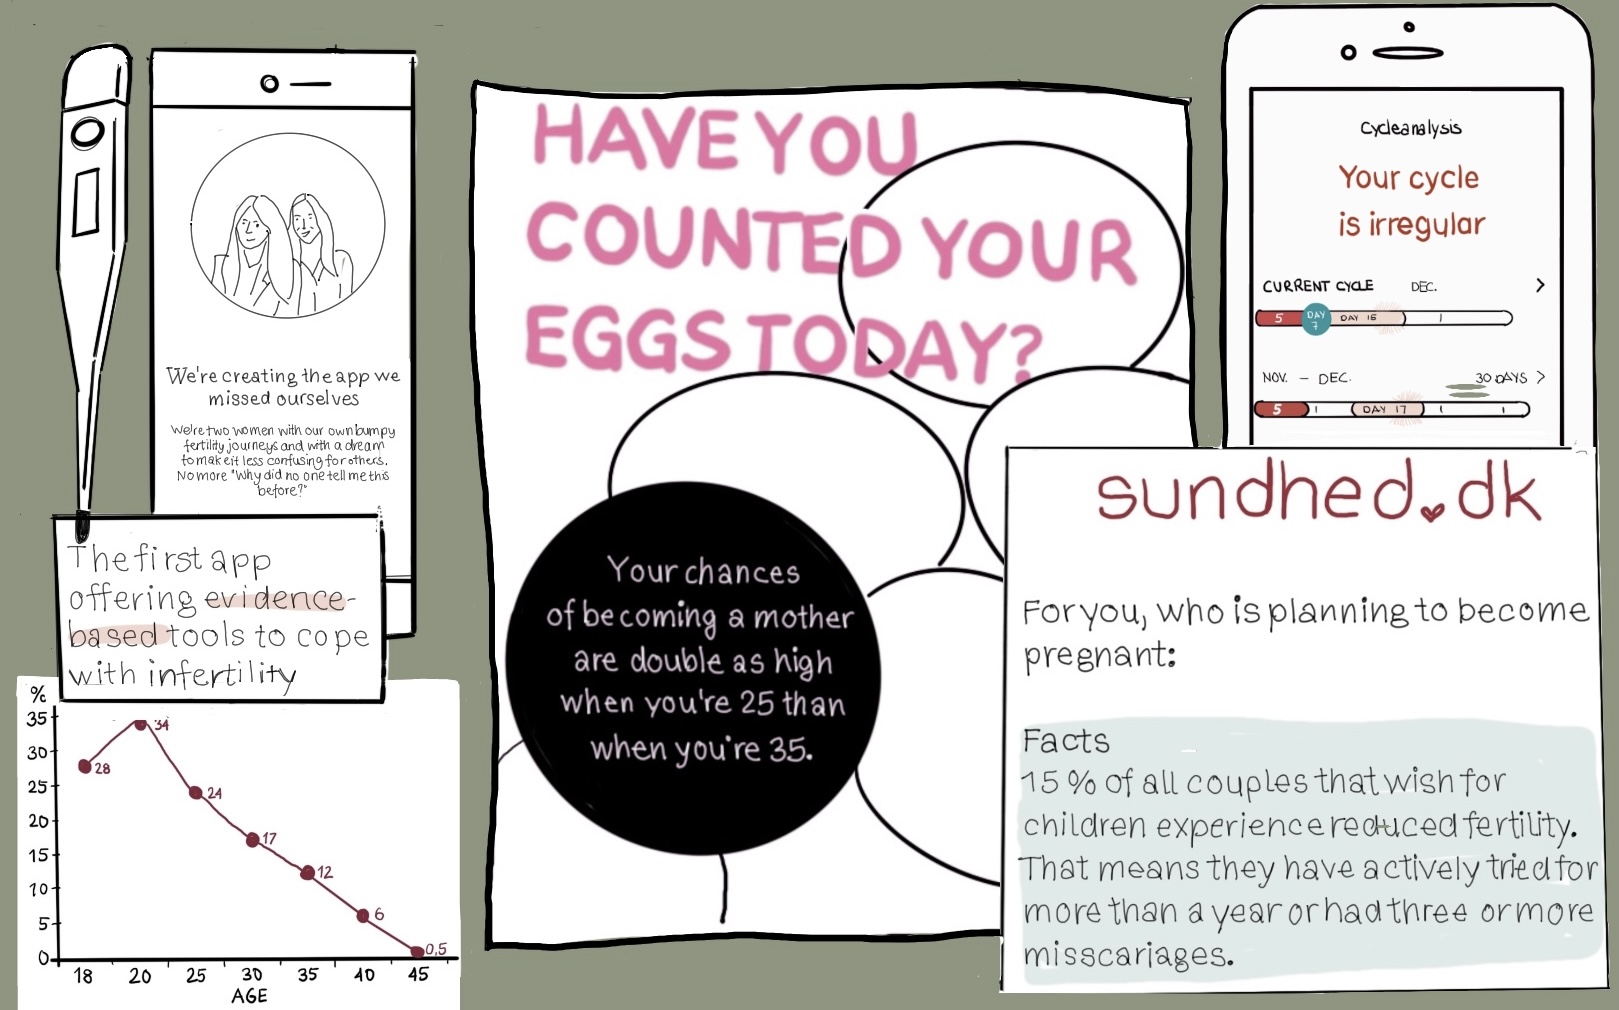 We're creating the app we
missed ourselves
We're two women with our own bumpy
fertility journeys and with a dream
to make it less confusing for others.
No more "Why did no one tell me this
before?"
The first app
offering evidence-
based tools to cope
with infertility
%
35
30
25
20
15
10
5
0
28
34
24
17
12
6
0,5
18 20 25 30 35 40 45
AGE
HAVE YOU
COUNTED YOUR
EGGS TODAY?
Your chances
of becoming a mother
are double as high
when you're 25 than
when you're 35.
Cycleanalysis
Your cycle
is irregular
CURRENT CYCLE DEC. >
5 DAY 7 DAY 16
NOV. - DEC. 30 DAYS >
5 DAY 17
sundhed.dk
For you, who is planning to become
pregnant:
Facts
15 % of all couples that wish for
children experience reduced fertility.
That means they have actively tried for
more than a year or had three or more
misscariages.